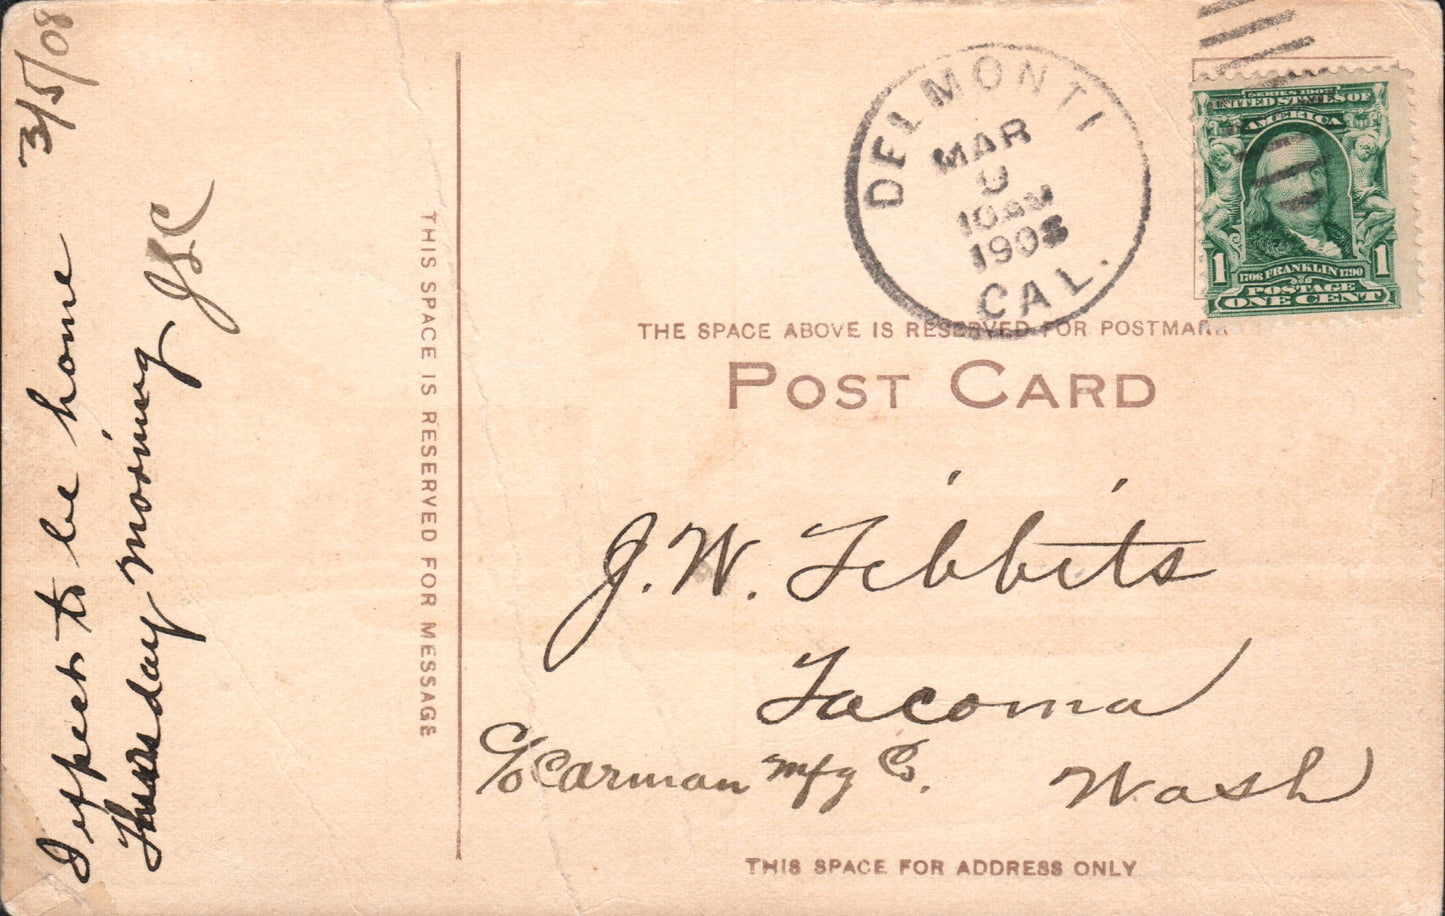 3/5/08
I expect to be home
Thursday morning JSC
THIS SPACE IS RESERVED FOR MESSAGE
DELMONTI
MAR
9
10 AM
1908
CAL.
SERIES 1902
UNITED STATES OF
AMERICA
1 1706 FRANKLIN 1790 1
POSTAGE
ONE CENT
THE SPACE ABOVE IS RESERVED FOR POSTMARK
POST CARD
J. W. Tibbits
Tacoma
c/o Carman Mfg Co. Wash
THIS SPACE FOR ADDRESS ONLY